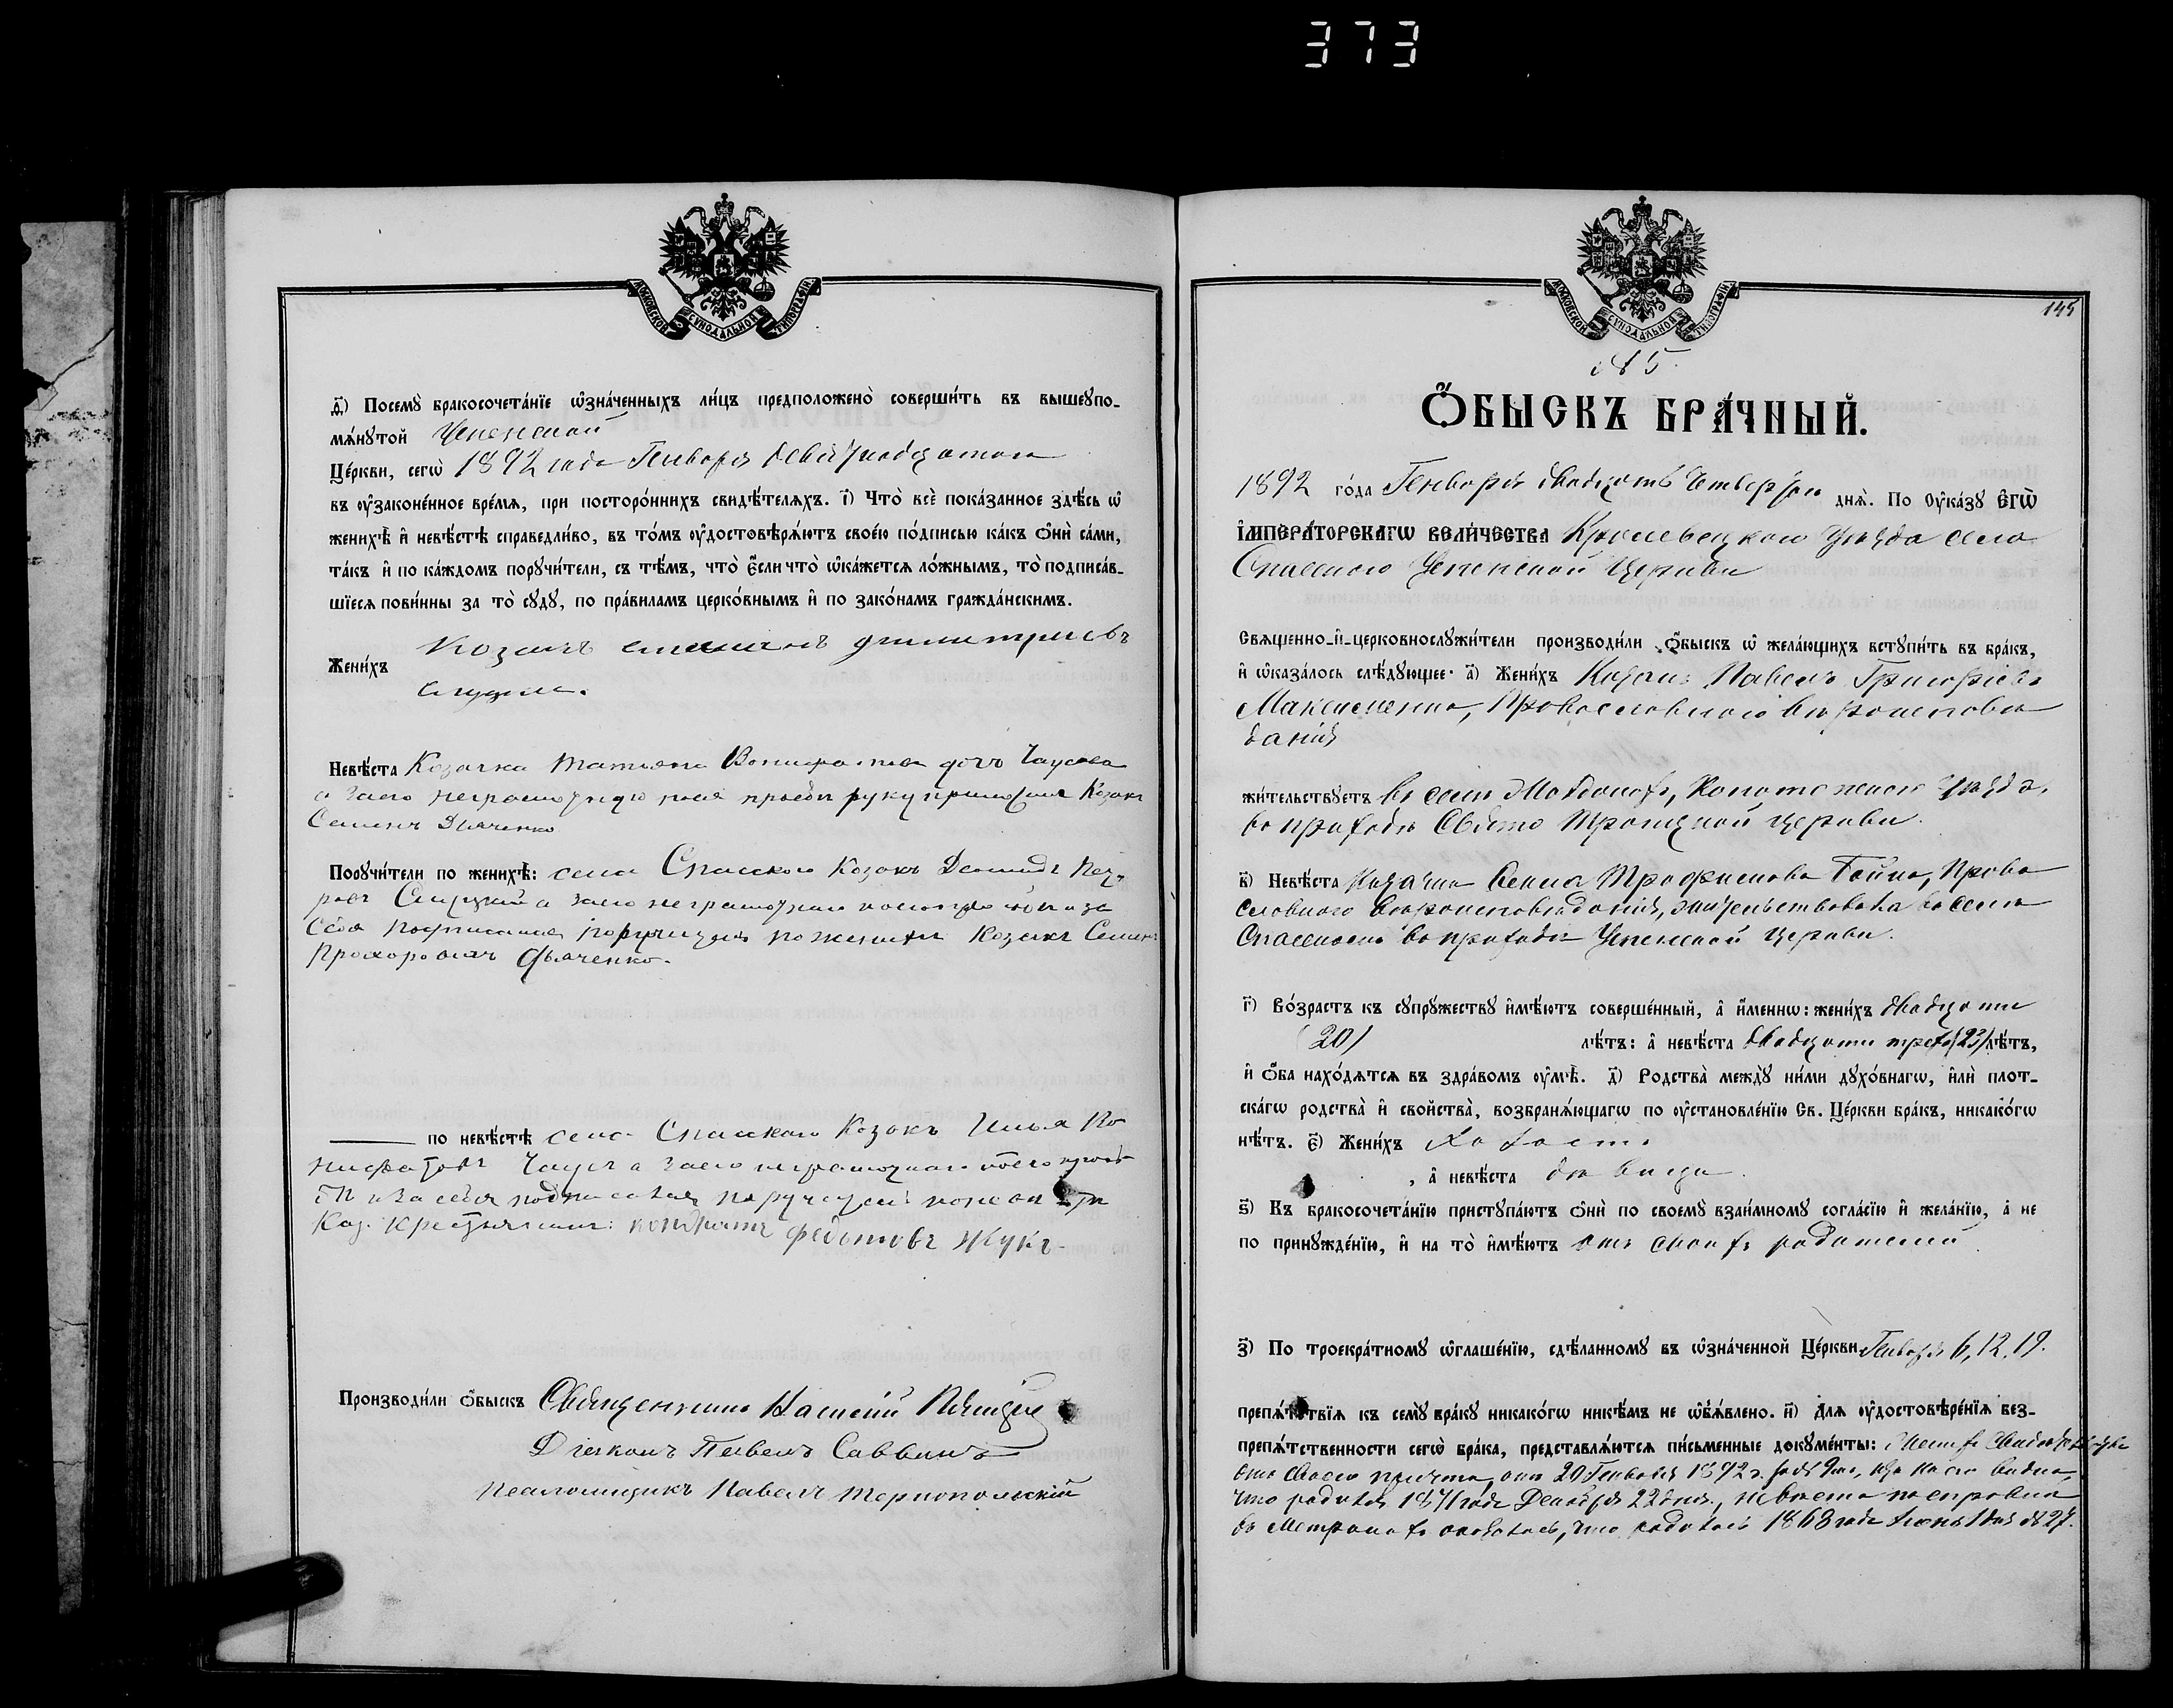 373
МОСКОВСКОЙ СѴНОДАЛЬНОЙ ТИПОГРАФІИ
ѳ҃) Посемꙋ̀ бракосочета́нїе ѡ҆зна́ченныхъ ли́цъ предположено̀ соверши́ть въ вышеꙋпо-
мѧ́нꙋтой Успенской
Це́ркви, сегѡ̀ 1892 года Генваря девятнадцатаго
въ ᲂу҆законе́нное вре́мѧ, при посторо́ннихъ свидѣ́телѧхъ. і҃) Что̀ всѐ пока́занное здѣ́сь ѡ҆
женихѣ̀ и҆ невѣ́стѣ справедли́во, въ то́мъ ᲂу҆достовѣрѧ́ютъ свое́ю по́дписью ка́къ ѻ҆нѝ са́ми,
та́къ и҆ по ка́ждомъ порꙋчи́тели, съ тѣ́мъ, что̀ є҆́сли что̀ ѡ҆ка́жетсѧ ло́жнымъ, то̀ подписа́в-
шїесѧ пови́нны за то̀ сꙋдꙋ̀, по пра́вилам церко́внымъ и҆ по зако́намъ гражда́нскимъ.
Жени́хъ Козакъ димитриевъ
Невѣ́ста Козачка Татьяна дочь Чаусова
а за неграмотную по ея прозьбе руку приложилъ Козакъ
Семенъ Дяченко
Порꙋчи́тели по женихѣ̀: села Спаского Козакъ Демидъ Пет-
ровъ а за него неграмотнаго и за
себя подписался поручитель по жениху Козакъ Семенъ
Прохоровичъ Дьяченко.
по невѣ́стѣ села Спаского Козакъ Илья Во
нифатовъ Чаусъ а за него неграмотнаго по его прозь
бѣ и за себя подписался поручитель по
Каз. крестьянинъ Кондратъ Федотовъ Жукъ
Производи́ли ѻ҆́быскъ Священникъ
Діяконъ Павелъ Саввинъ
Псаломщикъ Павелъ Тернопольскій
МОСКОВСКОЙ СѴНОДАЛЬНОЙ ТИПОГРАФІИ
145
№ 5.
Ѻ҆́БЫСКЪ БРА́ЧНЫЙ.
1892 го́да Генваря двадцать четвертаго днѧ̀. По Оу҆ка́зꙋ Є҆ГѠ̀
І҆МПЕРА́ТОРСКАГѠ ВЕЛИ́ЧЕСТВА Кролевецкого Уѣзда села
Спаского Успенской Церкви
Свѧще́нно-и҆-церковнослꙋжи́тели производи́ли ѻ҆́быскъ ѡ҆ жела́ющихъ встꙋпи́ть въ бра́къ,
и҆ ѡ҆каза́лось слѣ́дꙋющее: а҃) Жени́хъ Козакъ Павелъ Григорьевъ
Максименко, Православного вѣроисповѣ
данія
жи́тельствꙋетъ въ селѣ Конотопского Уѣзда,
въ приходѣ Свято Троицкой церкви.
в҃) Невѣ́ста Козачка Трофимова Гайко, Право
славного вѣроисповѣданія, жительствовала въ селѣ
Спаскомъ въ приходѣ Успенской церкви.
г҃) Во́зрастъ къ сꙋпрꙋ́жествꙋ и҆мѣ́ютъ соверше́нный, а҆ и҆́меннѡ: жени́хъ двадцати
(20) лѣ́тъ: а҆ невѣ́ста двадцати трехъ (23) лѣ́тъ,
и҆ ѻ҆́ба нахо́дѧтсѧ въ здра́вомъ ᲂу҆мѣ̀. д҃) Родства̀ междꙋ̀ ни́ми дꙋхо́внагѡ, и҆лѝ плот-
ска́гѡ родства̀ и҆ сво́йства̀, возбранѧ́ющагѡ по ᲂу҆становле́нїю Св. Це́ркви бра́къ, никако́гѡ
нѣ́тъ. є҃) Жени́хъ Холостъ
, а҆ невѣ́ста дѣвица.
ѕ҃) Къ бракосочета́нїю пристꙋпа́ютъ ѻ҆нѝ по своемꙋ̀ взаи́мномꙋ согла́сїю и҆ жела́нїю, а҆ не
по принꙋжде́нїю, и҆ на то̀ и҆мѣ́ютъ отъ своихъ родителей
з҃) По троекра́тномꙋ ѡ҆глаше́нїю, сдѣ́ланномꙋ въ ѡ҆зна́ченной Це́ркви Генваря 6, 12, 19.
препѧ́тствїѧ къ семꙋ̀ бра́кꙋ никако́гѡ никѣ́мъ не ѡ҆б̾ѧ́влено. и҃) Длѧ ᲂу҆достовѣре́нїѧ без-
препѧ́тственности сегѡ̀ бра́ка, представлѧ́ютсѧ пи́сьменные докꙋме́нты:
отъ своего причта, отъ 20 Генваря 1892 г. изъ коего видно,
что родился 1871 года Декабря 22 дня, невѣста по справкѣ
въ Метрикахъ оказалось, что родилась 1868 года № 27.